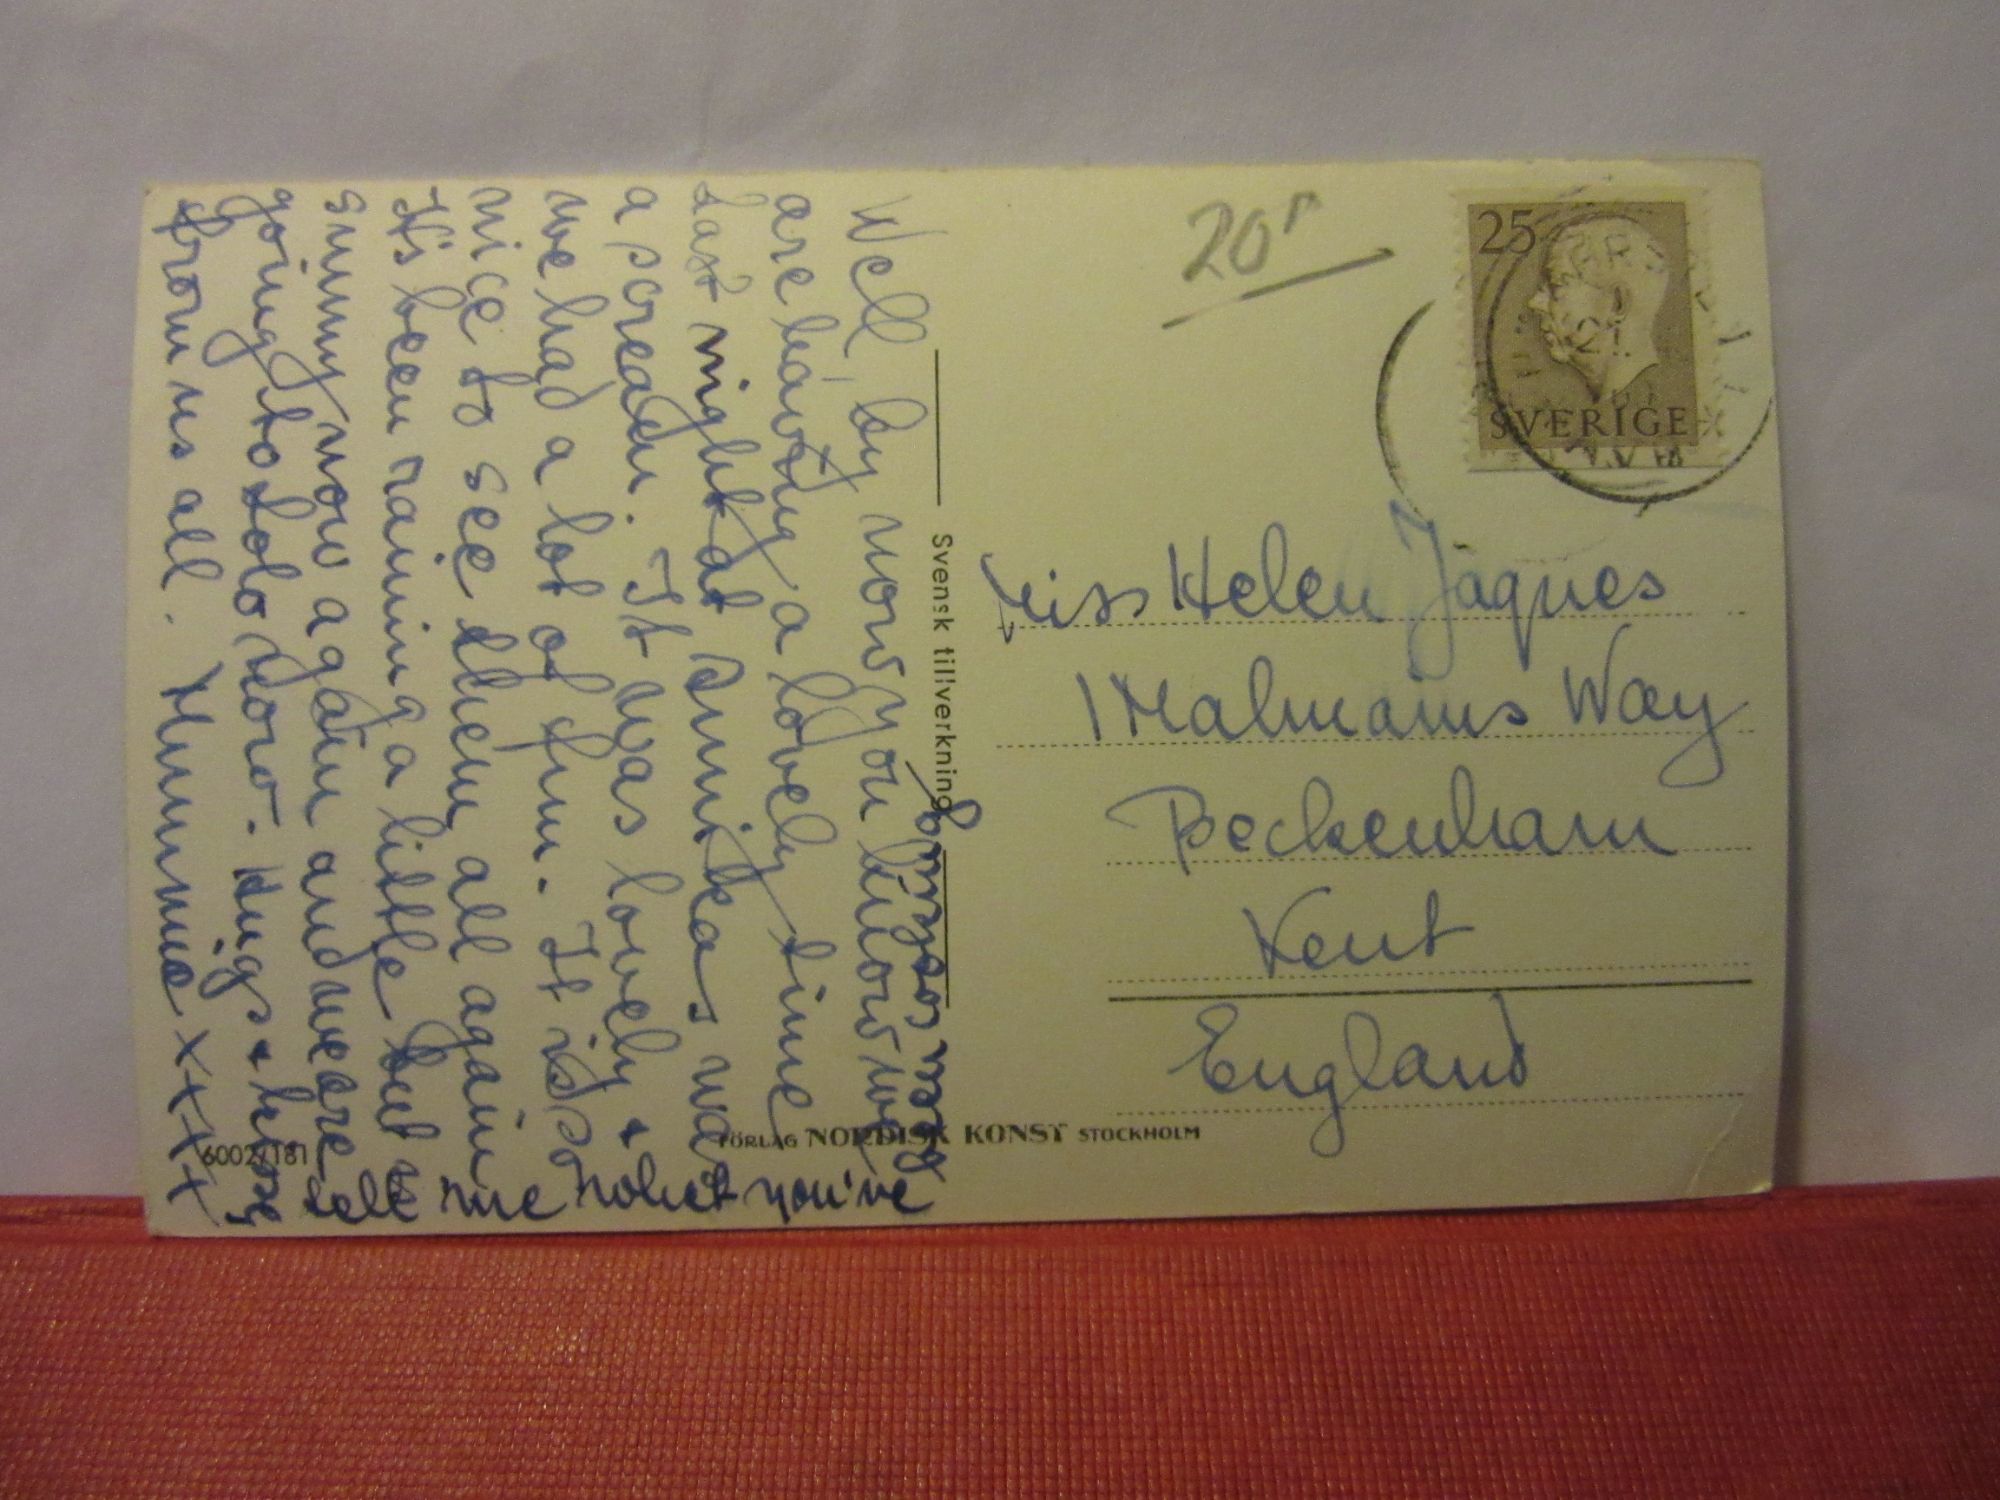 Well, by now you know we
are having a lovely time
Last night at Annikas was
a scream. It was lovely &
we had a lot of fun. It is so
nice to see them all again
It's been raining a little but
sunny now again and we are
going to Solo now. Hugs & kisses
from us all. Mummie x x x x
tell me what you've
been
Svensk tillverkning
20
25
SVERIGE
Miss Helen Jaques
1 Malmains Way
Beckenham
Kent
England
FÖRLAG NORDISK KONST STOCKHOLM
6002/181